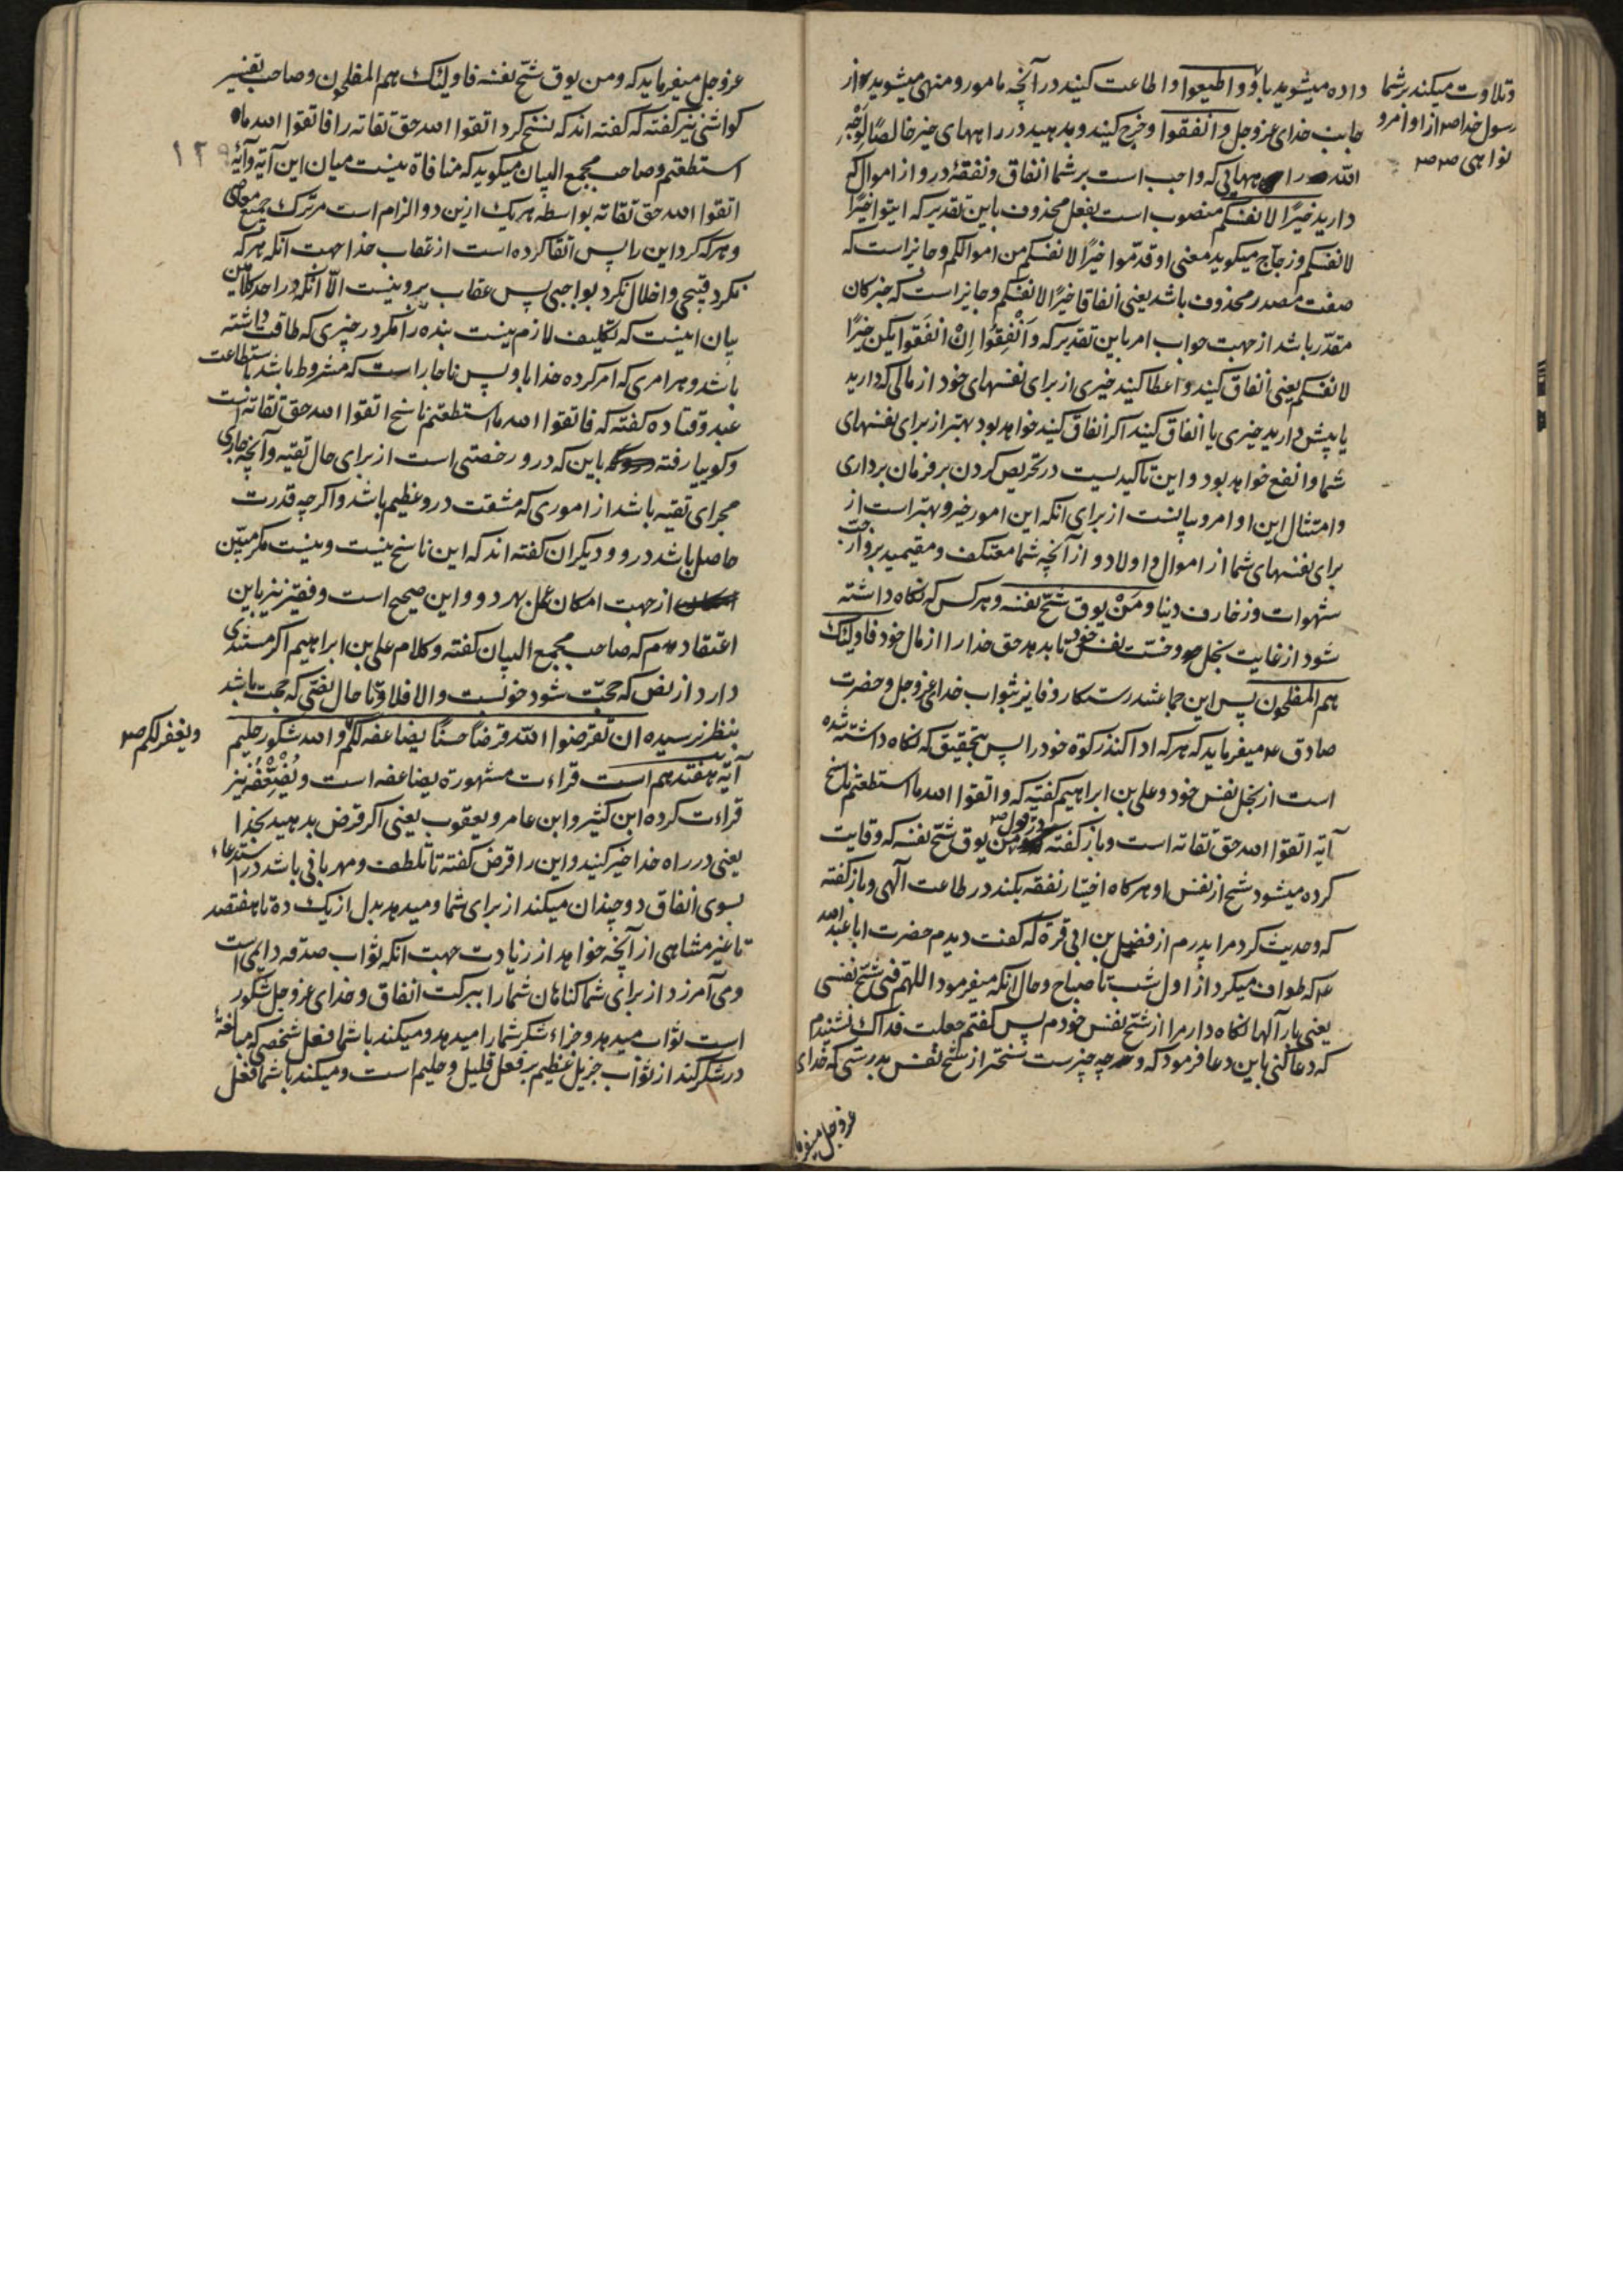 داده میشوید باو و اطیعوا و اطاعت کنید در آنچه مامور و منهی میشوید از
جانب خدای عز و جل و انفقوا و خرج کنید و بدهید در راههای خیر خالصًا لِوَجْهِ
الله راههایی که واجب است بر شما انفاق و نفقهٔ درو از اموال که
دارید خیرًا لانفسکم منصوب است بفعل محذوف باین تقدیر که ایتوا خیرًا
لانفسکم و زجاج میکوید معنی او قدّموا خیرًا لانفسکم من اموالکم و جایز است که
صفت مصدر محذوف باشد یعنی انفاقا خیرًا لانفسکم و جایز است که خبر کان
مقدّر باشد از جهت جواب امر باین تقدیر که وَاَنْفِقُوا اِنْ انفَقوا یکن خیرًا
لانفسکم یعنی انفاق کنید و اعطا کنید خیری از برای نفسهای خود از مالی که دارید
یا پیش دارید خیری یا انفاق کنید اکر انفاق کنید خواهد بود بهتر از برای نفسهای
شما و انفع خواهد بود و این تاکیدیست در تحریص کردن بر فرمان برداری
و امتثال این اوامر و بیانست از برای انکه این امور خیر و بهتر است از
برای نفسهای شما از اموال و اولاد و از آنچه شما معتکف و مقیمید برو از حب
شهوات و زخارف دنیا و مَنْ یوق شحّ نفسه و هر کس که نکاه داشته
شود از غایت بخل و خسّت نفس خود تا بدهد حق خدا را از مال خود فاولئک
هم المفلحون پس این جماعتند رستکار و فایز بثواب خدای عز و جل و حضرت
صادق ع میفرماید که هر که ادا کند زکوة خود را پس بتحقیق که نکاه داشته شده
است از بخل نفس خود و علی بن ابراهیم کفته که و اتقوا الله ما استطعتم ناسخ
آیه اتقوا الله حق تقاته است و باز کفته در قول و من یوق شحّ نفسه که وقایت
کرده میشود شح از نفس او هر کاه اختیار نفقه بکند در طاعت آلهی و باز کفته
که و حدیث کرد مرا پدرم از فضل بن ابی قره که کفت دیدم حضرت ابا عبد الله
ع که طواف میکرد از اول شب تا صباح و حال انکه میفرمود اللهم قنی شحّ نفسی
یعنی بار آلها نکاه دار مرا از شحّ نفس خودم پس کفتم جعلت فداک نشنیدم
که دعا کنی باین دعا فرمود که و چه چیزست سختر از شح نفس بدرستی که خدای
عز و جل میفرما
و تلاوت میکند بر شما
رسول خدا ص از اوامر و
نواهی ص ص
عز و جل میفرماید که و من یوق شحّ نفسه فاولئک هم المفلحون و صاحب تفسیر
کواشی نیز کفته که کفته اند که نسخ کرد اتقوا الله حق تقاته را فاتقوا الله ما
استطعتم و صاحب مجمع البیان میکوید که منافاة نیست میان این آیه و آیهٔ
١٢٩
اتقوا الله حق تقاته بواسطه هر یک ازین دو الزام است مر ترک جمیع معاصی
و هر که کرد این را پس اتقا کرده است از عقاب خدا جهت انکه هر که
نکرد قبیحی و اخلال نکرد بواجبی پس عقاب برو نیست الّا انکه در احد کلامین
بیان اینست که تکلیف لازم نیست بنده را مکر در چیزی که طاقت داشته
باشد و هر امری که امر کرده خدا باو پس ناچار است که مشروط باشد باستطاعت
عبد و قتاده کفته که فاتقوا الله ما استطعتم ناسخ اتقوا الله حق تقاته است
و کوییا رفته باین که درو رخصتی است از برای حال تقیه و آنچه جاری
مجرای تقیه باشد از اموری که مشقت درو عظیم باشد و اکر چه قدرت
حاصل باشد درو و دیکران کفته اند که این ناسخ نیست و نیست مکر مبیّن
از جهت امکان عمل بهر دو و این صحیح است و فقیر نیز باین
اعتقادم که صاحب مجمع البیان کفته و کلام علی بن ابراهیم اکر مستندی
دارد از نص که حجّت شود خوبست و الا فلا و تا حال نصّی که حجت باشد
بنظر نرسیده ان تقرضوا الله قرضًا حسنًا یضاعفه لکم و الله شکور حلیم
ویغفر لکم ص
آیه هفتدهم است قراءت مشهوره یضاعفه است و یُضَعِّفْهُ نیز
قراءت کرده ابن کثیر و ابن عامر و یعقوب یعنی اکر قرض بدهید بخدا
یعنی در راه خدا خیر کنید و این را قرض کفته تا تلطف و مهربانی باشد در استدعاء
بسوی انفاق دو چندان میکند از برای شما و میدهد بدل از یک ده تا هفتصد
تا غیر متناهی از آنچه خواهد از زیادت جهت انکه ثواب صدقه دایمی است
و می آمرزد از برای شما کناهان شما را ببرکت انفاق و خدای عز و جل شکور
است ثواب میدهد و جزاء شکر شما را میدهد و میکند با شما فعل شخصی که مبالغهٔ
در شکر کند از ثواب جزیل عظیم بر فعل قلیل و حلیم است و میکند با شما فعل